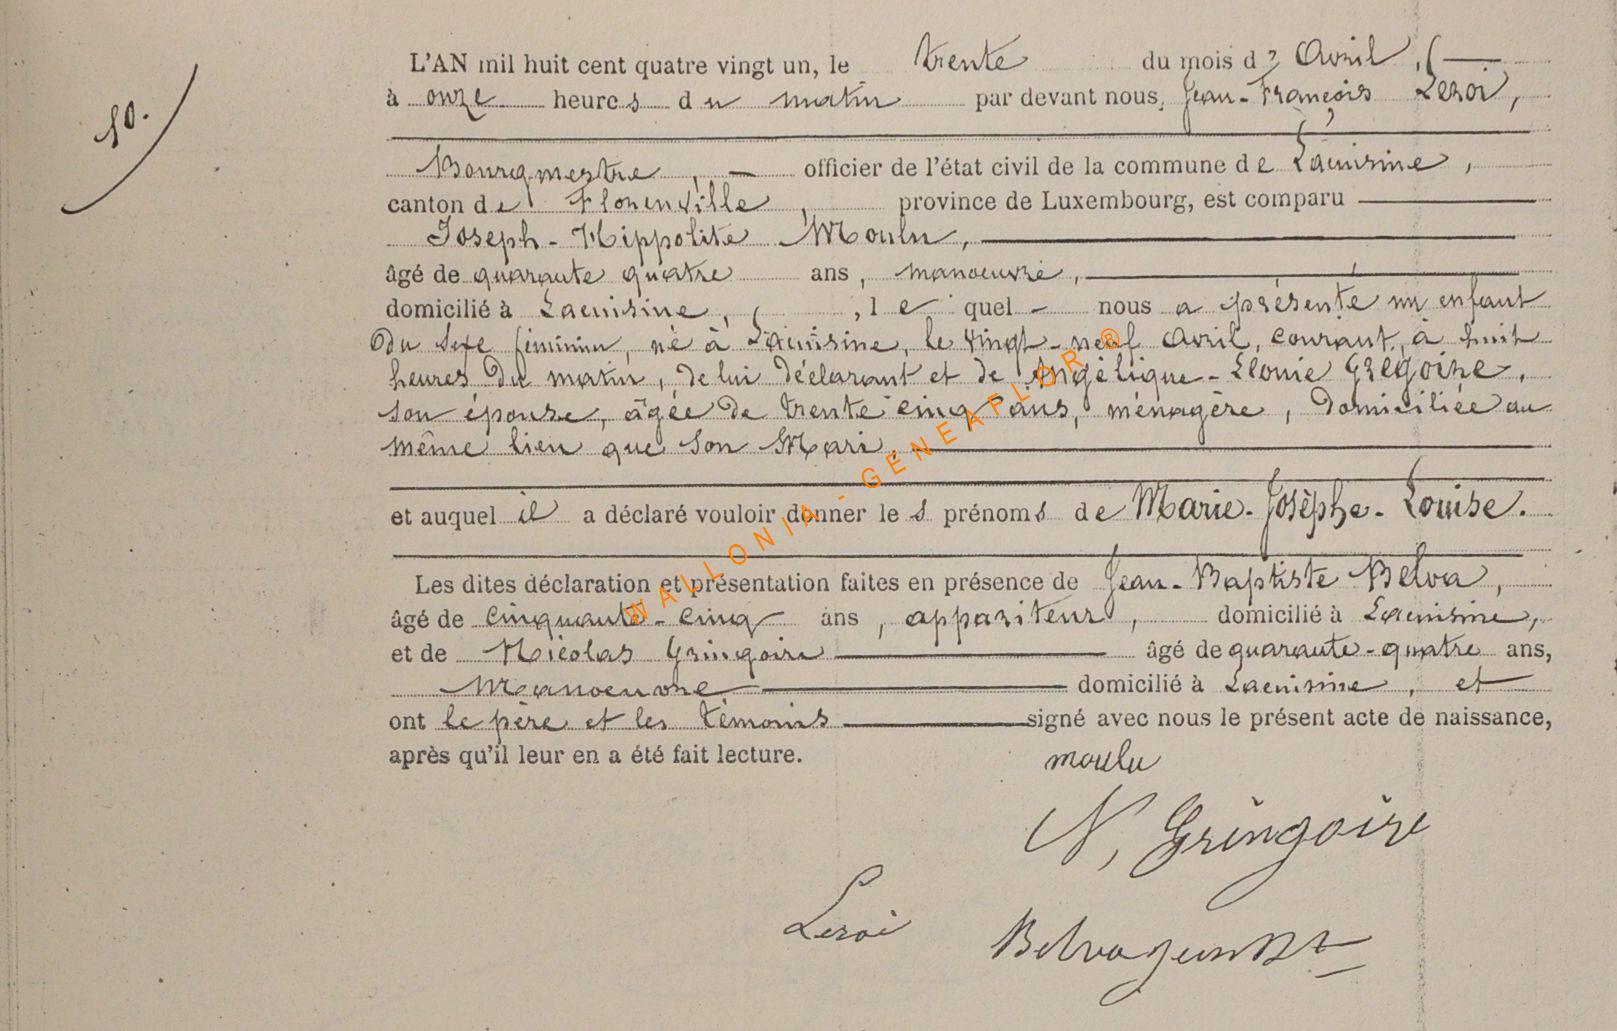 10.
L'AN mil huit cent quatre vingt un, le trente du mois d'Avril,
à onze heures du matin par devant nous, Jean-François Leroi,
Bourgmestre, officier de l'état civil de la commune de Lacuisine,
canton de Florenville, province de Luxembourg, est comparu
Joseph-Hippolite Moulu,
âgé de quarante quatre ans, manoeuvre,
domicilié à Lacuisine, lequel nous a présenté un enfant
du Sexe féminin, né à Lacuisine, le vingt-neuf Avril, courant, à huit
heures du matin, de lui déclarant et de Angélique-Léonie Grégoire,
son épouse, âgée de trente cinq ans, ménagère, domiciliée au
même lieu que son Mari,
et auquel il a déclaré vouloir donner les prénoms de Marie-Josèphe-Louise.
Les dites déclaration et présentation faites en présence de Jean-Baptiste Belva,
âgé de cinquante-cinq ans, appariteur, domicilié à Lacuisine,
et de Nicolas Gringoire âgé de quarante-quatre ans,
Manoeuvre domicilié à Lacuisine, et
ont le père et les témoins signé avec nous le présent acte de naissance,
après qu'il leur en a été fait lecture.
moulu
N, Gringoire
Leroi
Belva jean Bt
WALLONIA-GENEAFLOR®